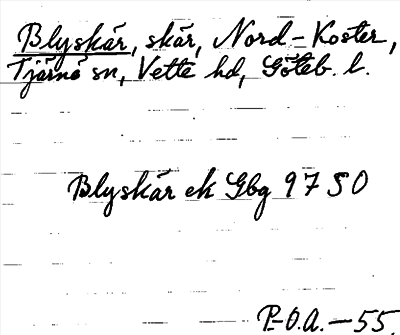 Blyskär, skär, Nord-Koster,
Tjärnö sn, Vette hd, Göteb. l.
Blyskär ek Gbg 9750
P-O.A. - 55.